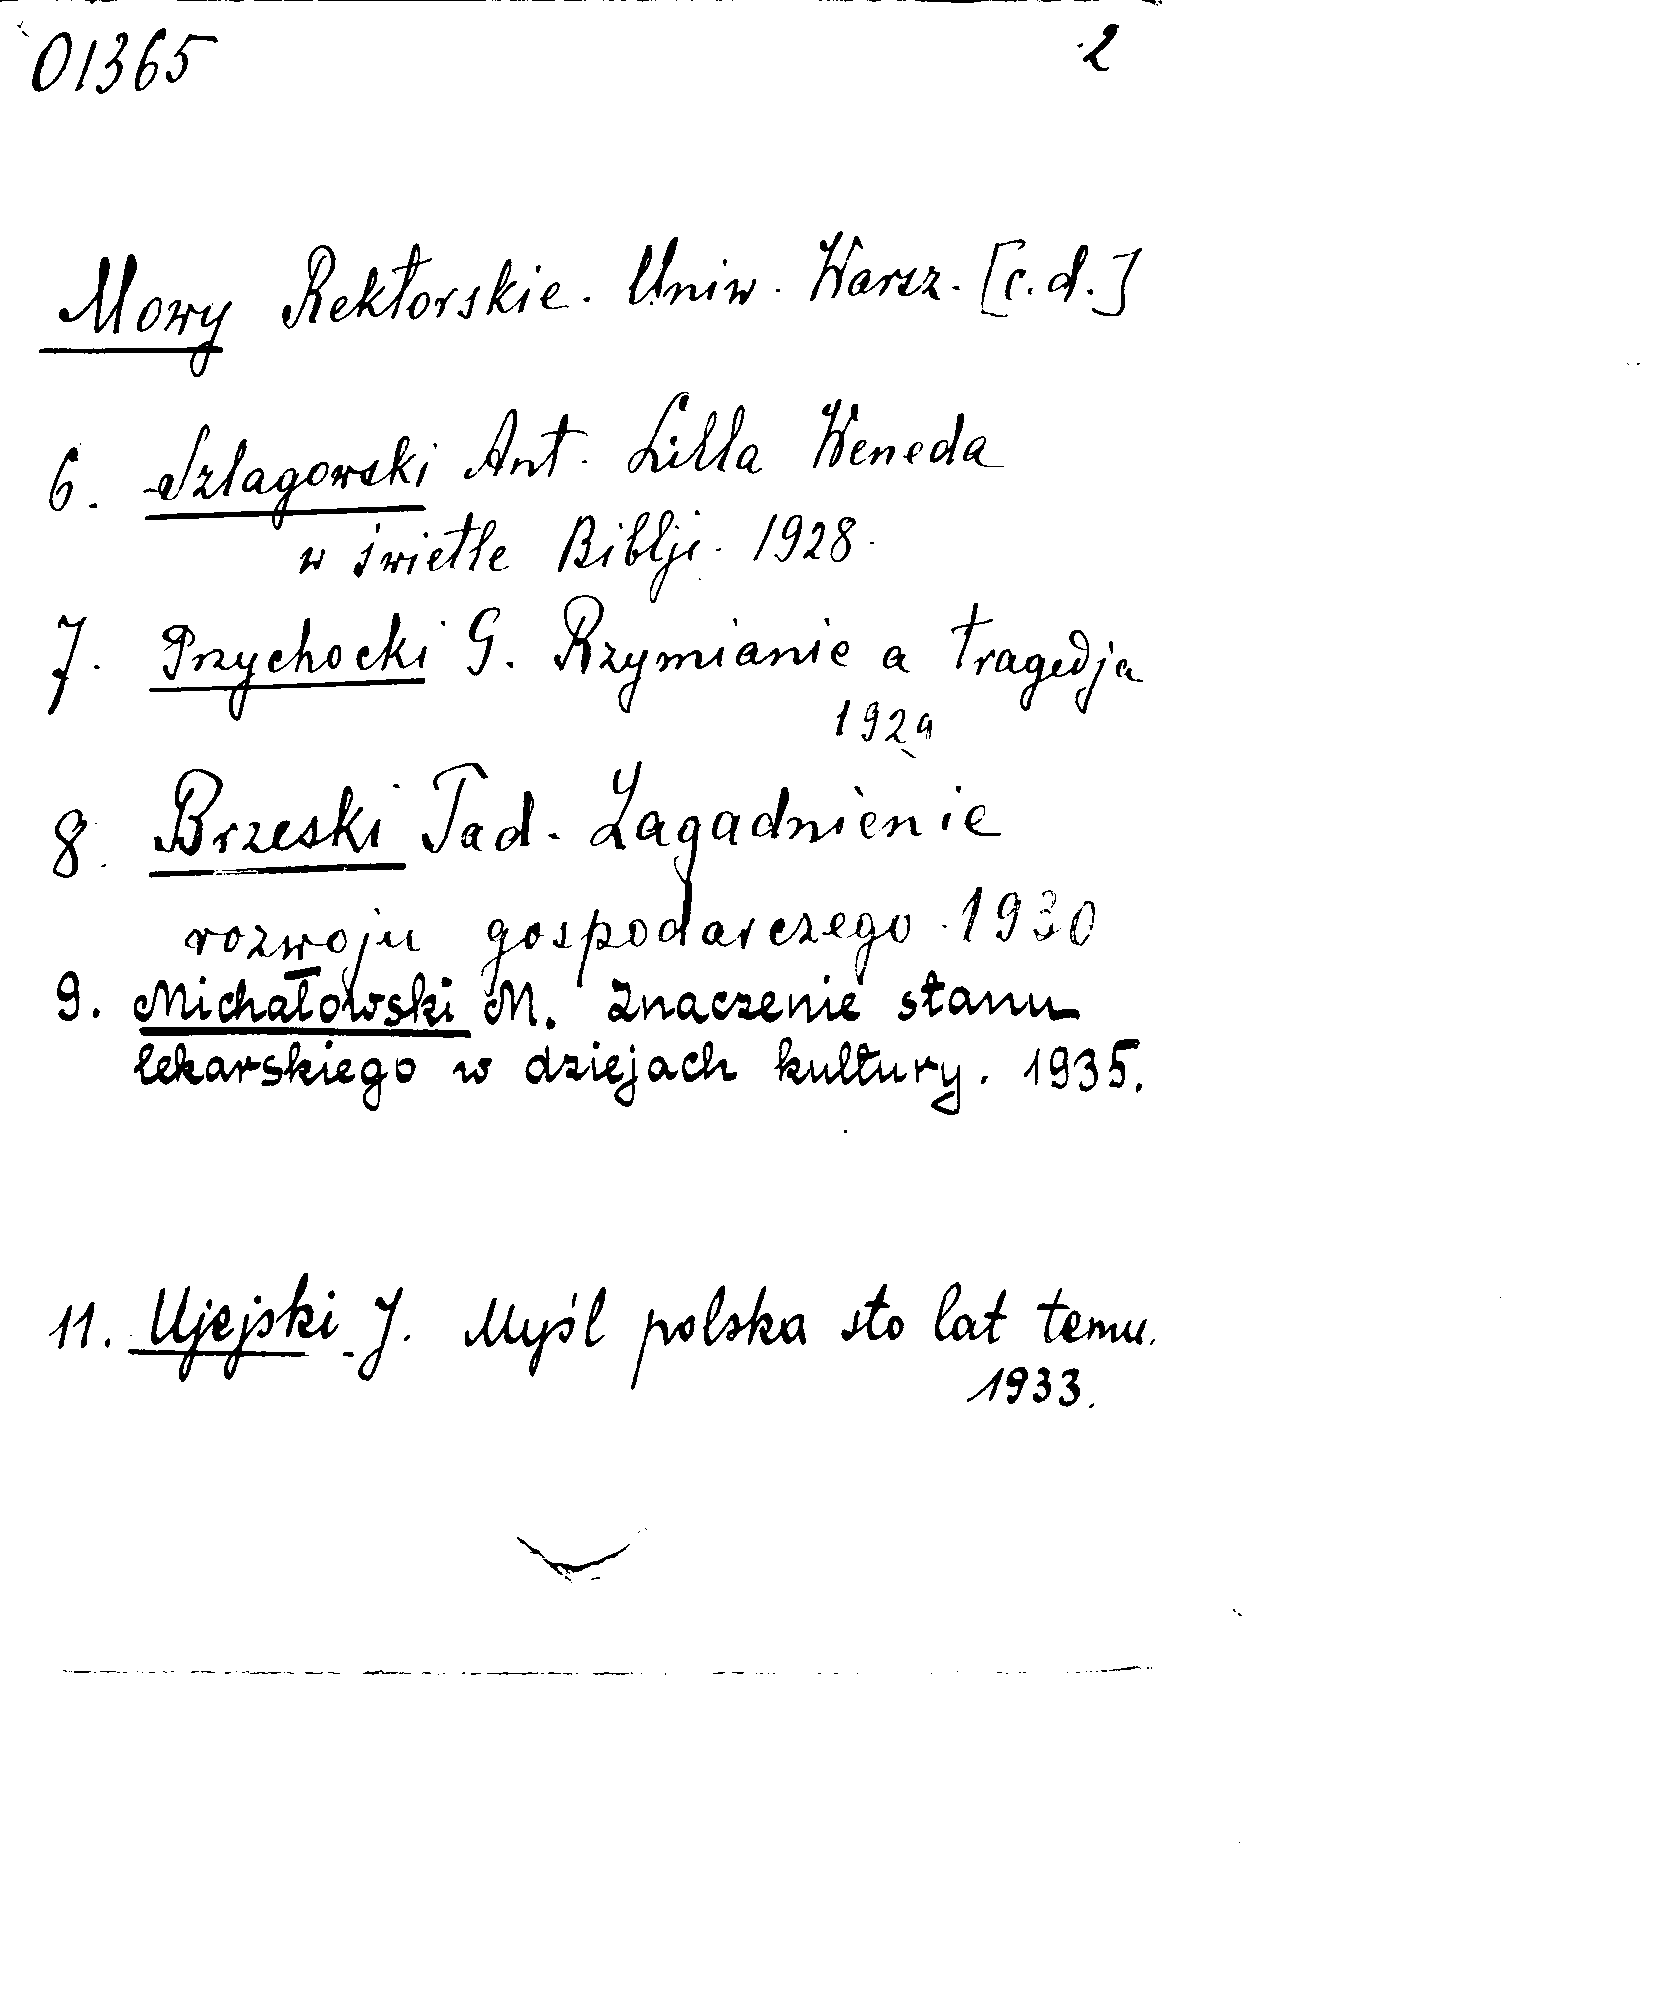 01365 2
Mowy Rektorskie. Uniw. Warsz. [c.d.]
6. Szlagowski Ant. Lilla Weneda
w świetle Biblji. 1928.
7. Przychocki G. Rzymianie a tragedja
1929
8. Brzeski Tad. Zagadnienie
rozwoju gospodarczego. 1930
9. Michałowski M. Znaczenie stanu
lekarskiego w dziejach kultury. 1935.
11. Ujejski J. Myśl polska sto lat temu.
1933.